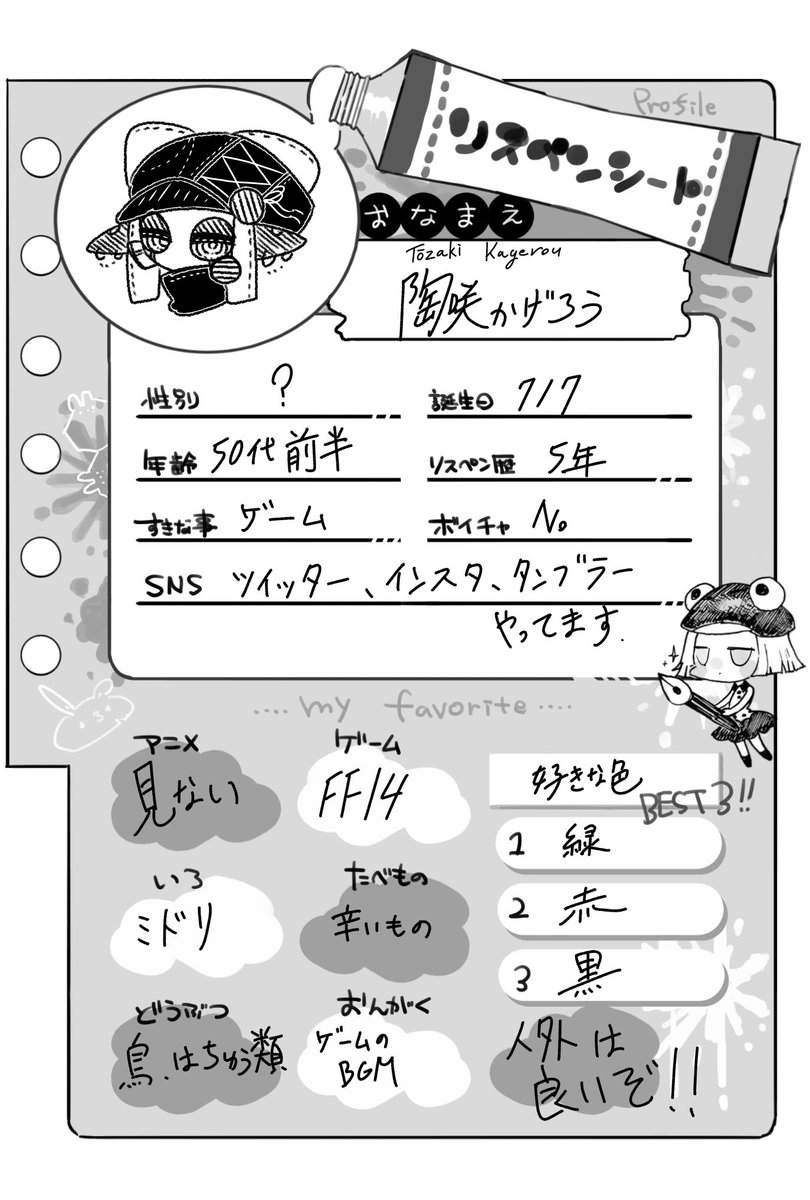 Profile
リスペンシート
おなまえ
Tozaki Kagerou
陶咲かげろう
性別 ?
誕生日 7/7
年齢 50代前半
リスペン歴 5年
すきな事 ゲーム
ボイチャ No
SNS ツイッター、インスタ、タンブラー
やってます.
....my favorite....
アニメ
見ない
ゲーム
FF14
いろ
ミドリ
たべもの
辛いもの
どうぶつ
鳥、はちゅう類
おんがく
ゲームの
BGM
好きな色
BEST3!!
1 緑
2 赤
3 黒
人外は
良いぞ!!